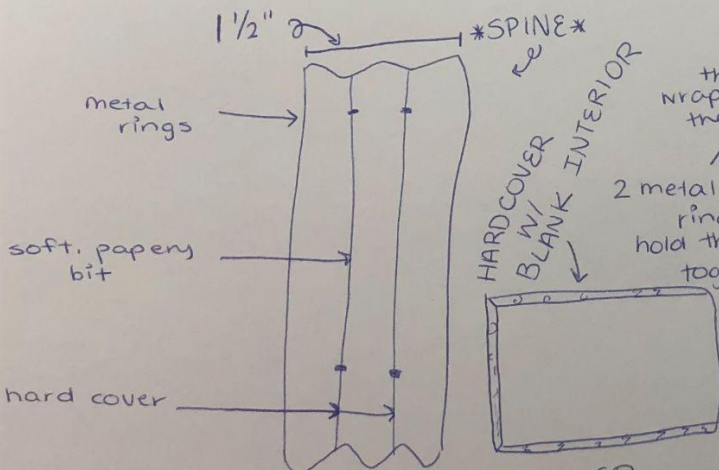 1 1/2"
*SPINE*
metal
rings
soft. papery
bit
hard cover
HARDCOVER
W/
BLANK INTERIOR
th
wrap
the
2 metal
ring
hold th
tog